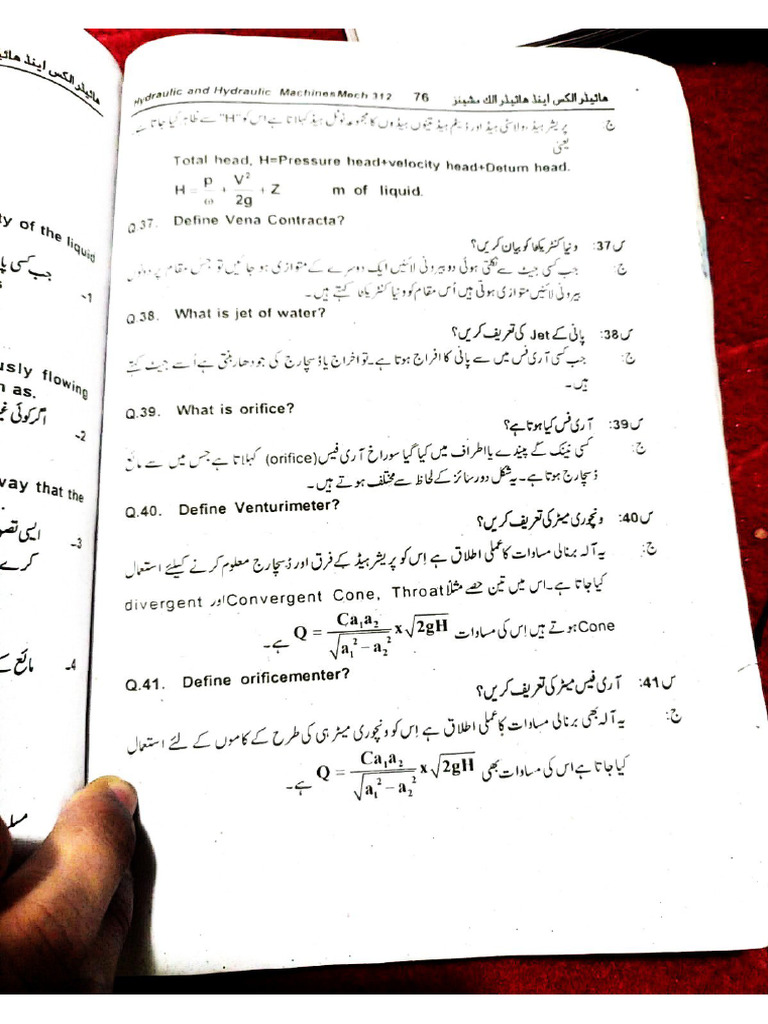 هائیڈرالکس اینڈ هائی
ty of the liquid
جب کسی
-1
usly flowing
as.
اگر کوئی
-2
way that the
ایسی
-3
کرے
مائع کے
-4
Hydraulic and Hydraulic Machines Mech 312 76 هائیڈرالکس اینڈ هائیڈرالک مشینز
ج: پریشر ہیڈ، ولاسٹی ہیڈ اور ڈیٹم ہیڈ تینوں ہیڈوں کا مجموعہ ٹوٹل ہیڈ کہلاتا ہے اس کو "H" سے ظاہر کیا جاتا ہے
یعنی
Total head, H=Pressure head+velocity head+Detum head.
H = p/ω + V²/2g + Z m of liquid.
Q.37. Define Vena Contracta?
س37: وینا کنٹریکٹا کو بیان کریں؟
ج: جب کسی جیٹ سے نکلتی ہوئی دو بیرونی لائنیں ایک دوسرے کے متوازی ہو جائیں تو جس مقام پر دونوں
بیرونی لائنیں متوازی ہوتی ہیں اُس مقام کو وینا کنٹریکٹا کہتے ہیں۔
Q.38. What is jet of water?
س38: پانی کے Jet کی تعریف کریں؟
ج: جب کسی آری فس میں سے پانی کا افراج ہوتا ہے۔ تو اخراج یا ڈسچارج کی جو دھار بنتی ہے اُسے جیٹ کہتے
ہیں۔
Q.39. What is orifice?
س39: آری فس کیا ہوتا ہے؟
ج: کسی ٹینک کے پیندے یا اطراف میں کیا گیا سوراخ آری فیس (orifice) کہلاتا ہے جس میں سے مائع
ڈسچارج ہوتا ہے۔ یہ شکل دور سائز کے لحاظ سے مختلف ہوتے ہیں۔
Q.40. Define Venturimeter?
س40: ونچوری میٹر کی تعریف کریں؟
ج: یہ آلہ برنالی مساوات کا عملی اطلاق ہے اِس کو پریشر ہیڈ کے فرق اور ڈسچارج معلوم کرنے کیلئے استعمال
کیا جاتا ہے۔ اس میں تین حصے مثلاً Convergent Cone, Throat اور divergent
Cone ہوتے ہیں اِس کی مساوات Q = Ca₁a₂/√(a₁² – a₂²) x √2gH ہے۔
Q.41. Define orificementer?
س41: آری فیس میٹر کی تعریف کریں؟
ج: یہ آلہ بھی برنالی مساوات کا عملی اطلاق ہے اِس کو ونچوری میٹر ہی کی طرح کے کاموں کے لئے استعمال
کیا جاتا ہے اس کی مساوات بھی Q = Ca₁a₂/√(a₁² – a₂²) x √2gH ہے۔